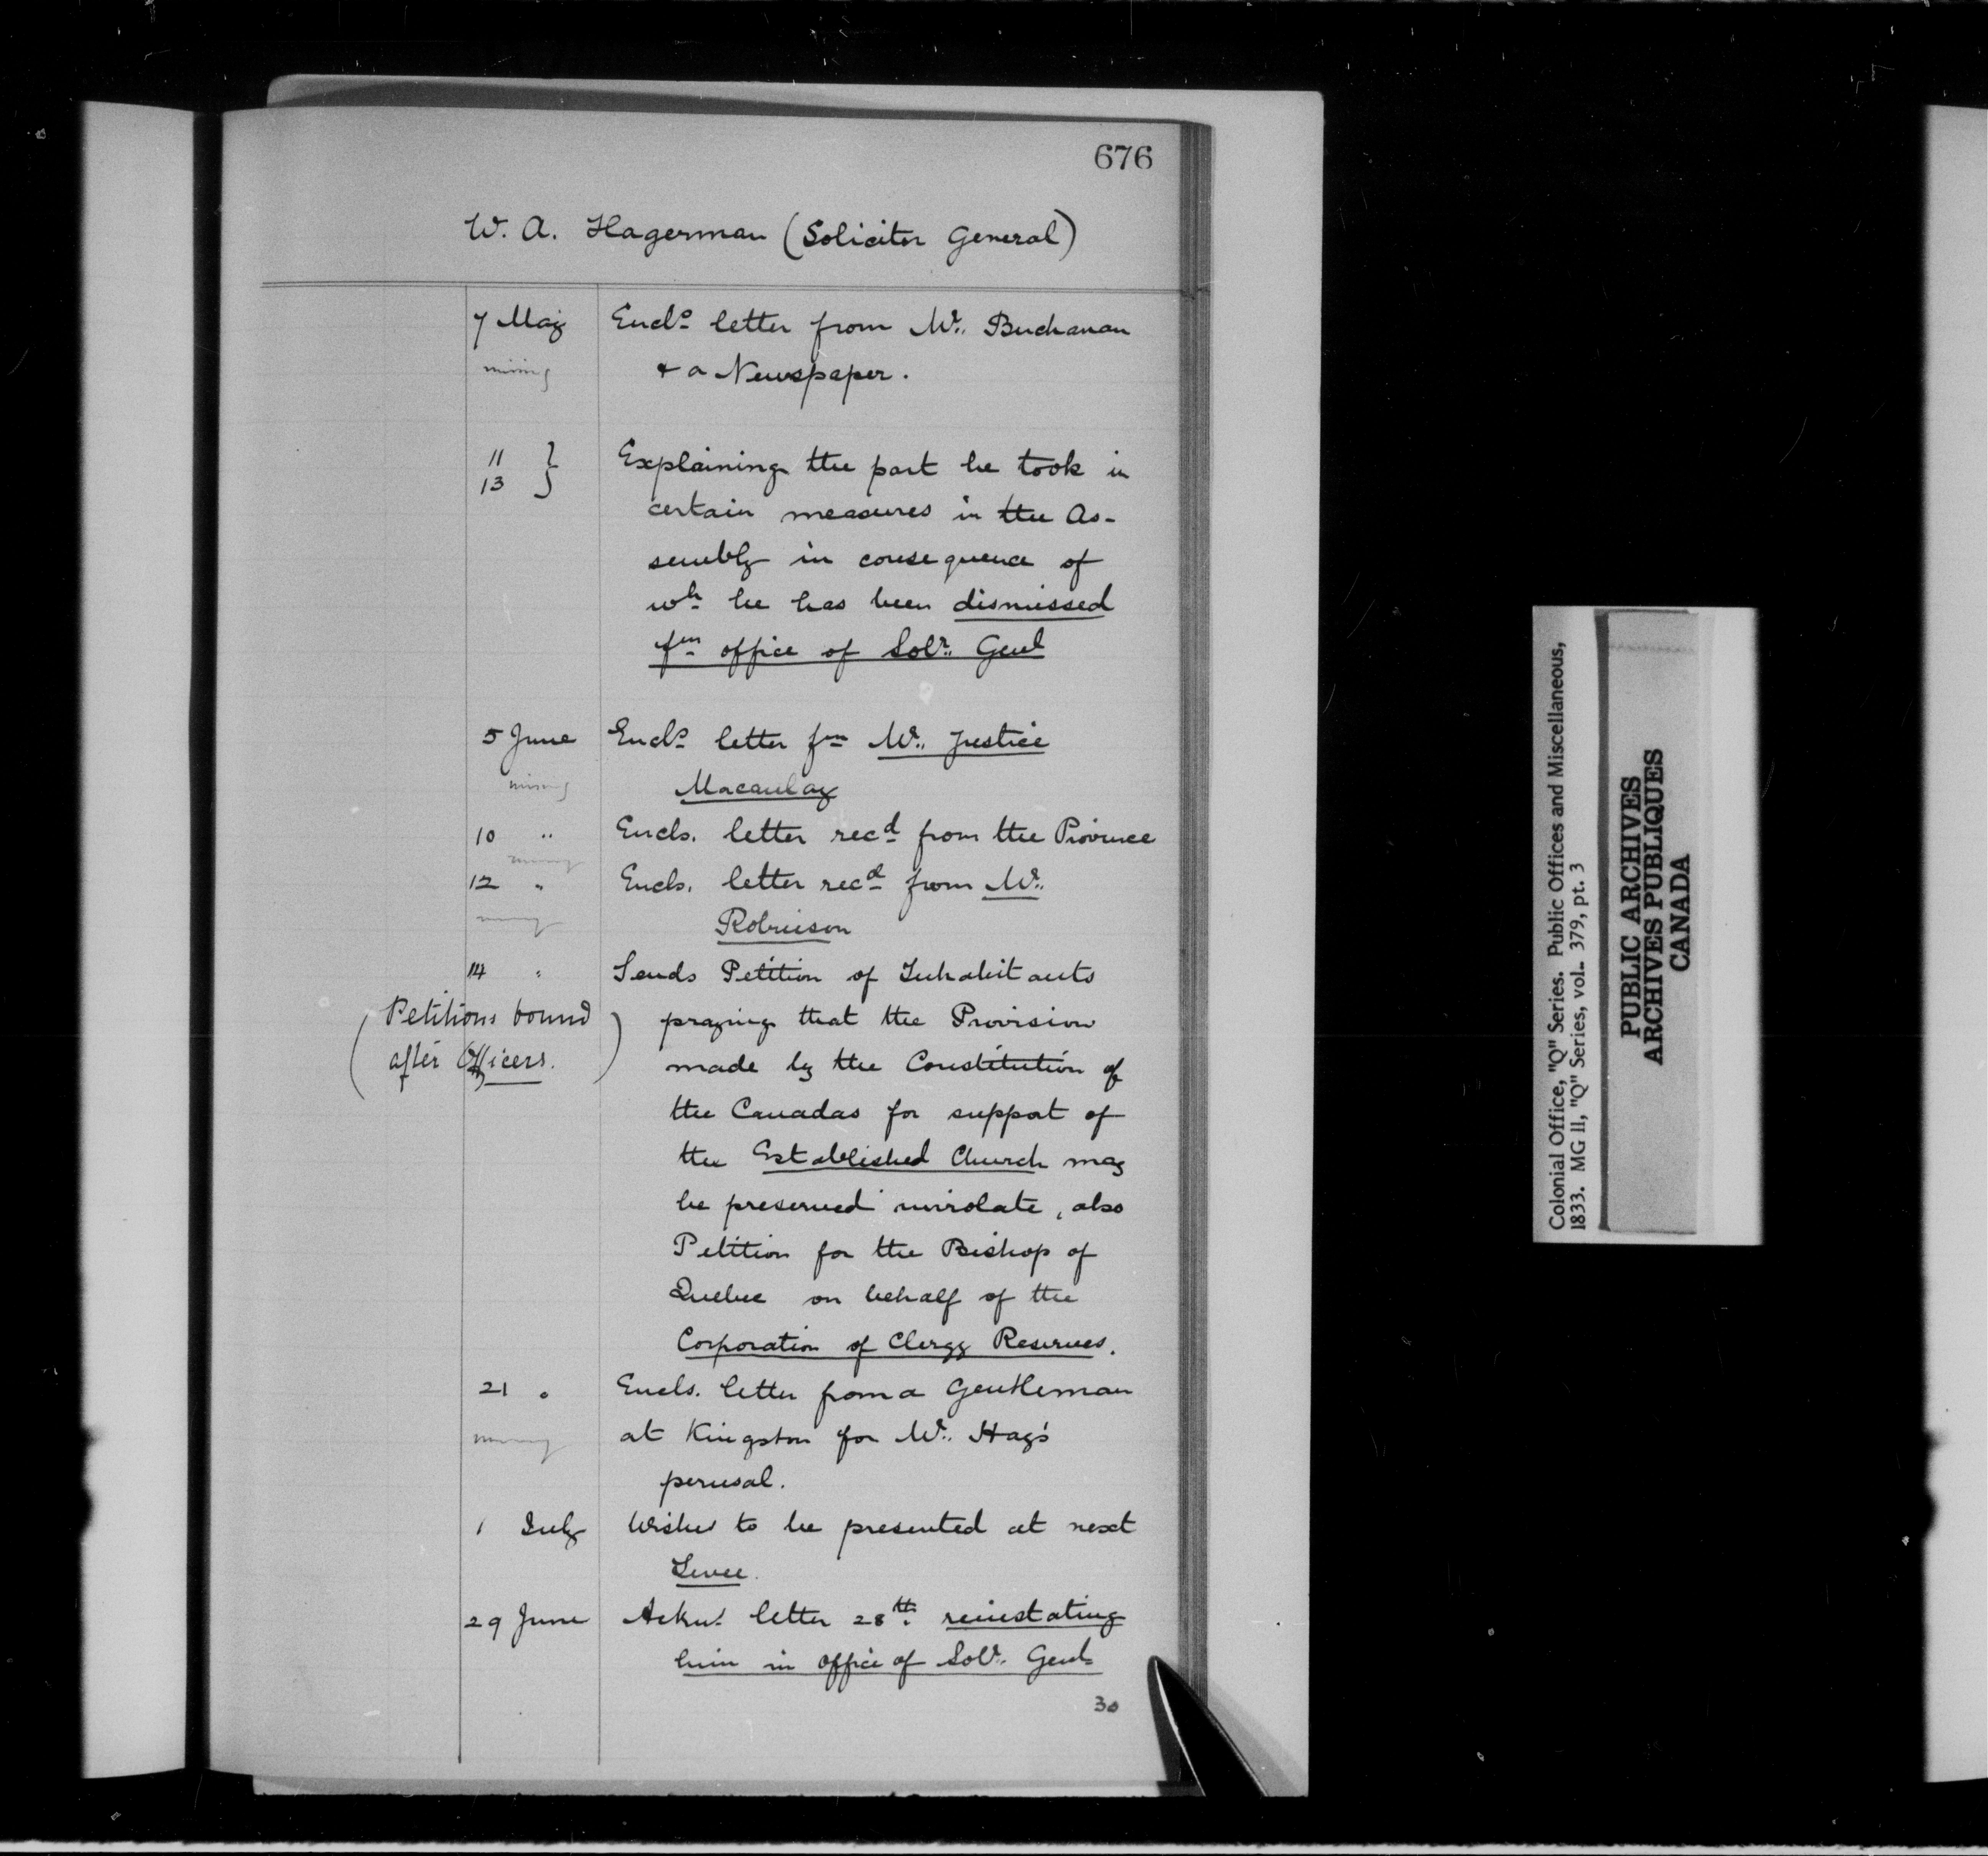 676
W. A. Hagerman (Solicitor General)
7 May Encls letter from Mr. Buchanan
missing & a Newspaper.
11 } Explaining the part he took in
13 } certain measures in the As-
sembly in consequence of
wh he has been dismissed
fm office of Solr. Genl
5 June Encls letter fm Mr. Justice
missing Macaulay
10 " Encls. letter recd from the Province
missing
12 " Encls. letter recd from Mr.
missing Robinson
14 " Sends Petition of Inhabitants
(Petitions bound praying that the Provision
after Officers.) made by the Constitution of
the Canadas for support of
the Established Church may
be preserved inviolate, also
Petition for the Bishop of
Quebec on behalf of the
Corporation of Clergy Reserves.
21 " Encls. letter from a Gentleman
missing at Kingston for Mr. Hag's
perusal.
1 July Wishes to be presented at next
Levee.
29 June Ackns letter 28th reinstating
him in office of Solr. Genl
30
Colonial Office, "Q" Series. Public Offices and Miscellaneous,
1833. MG 11, "Q" Series, vol. 379, pt. 3
PUBLIC ARCHIVES
ARCHIVES PUBLIQUES
CANADA